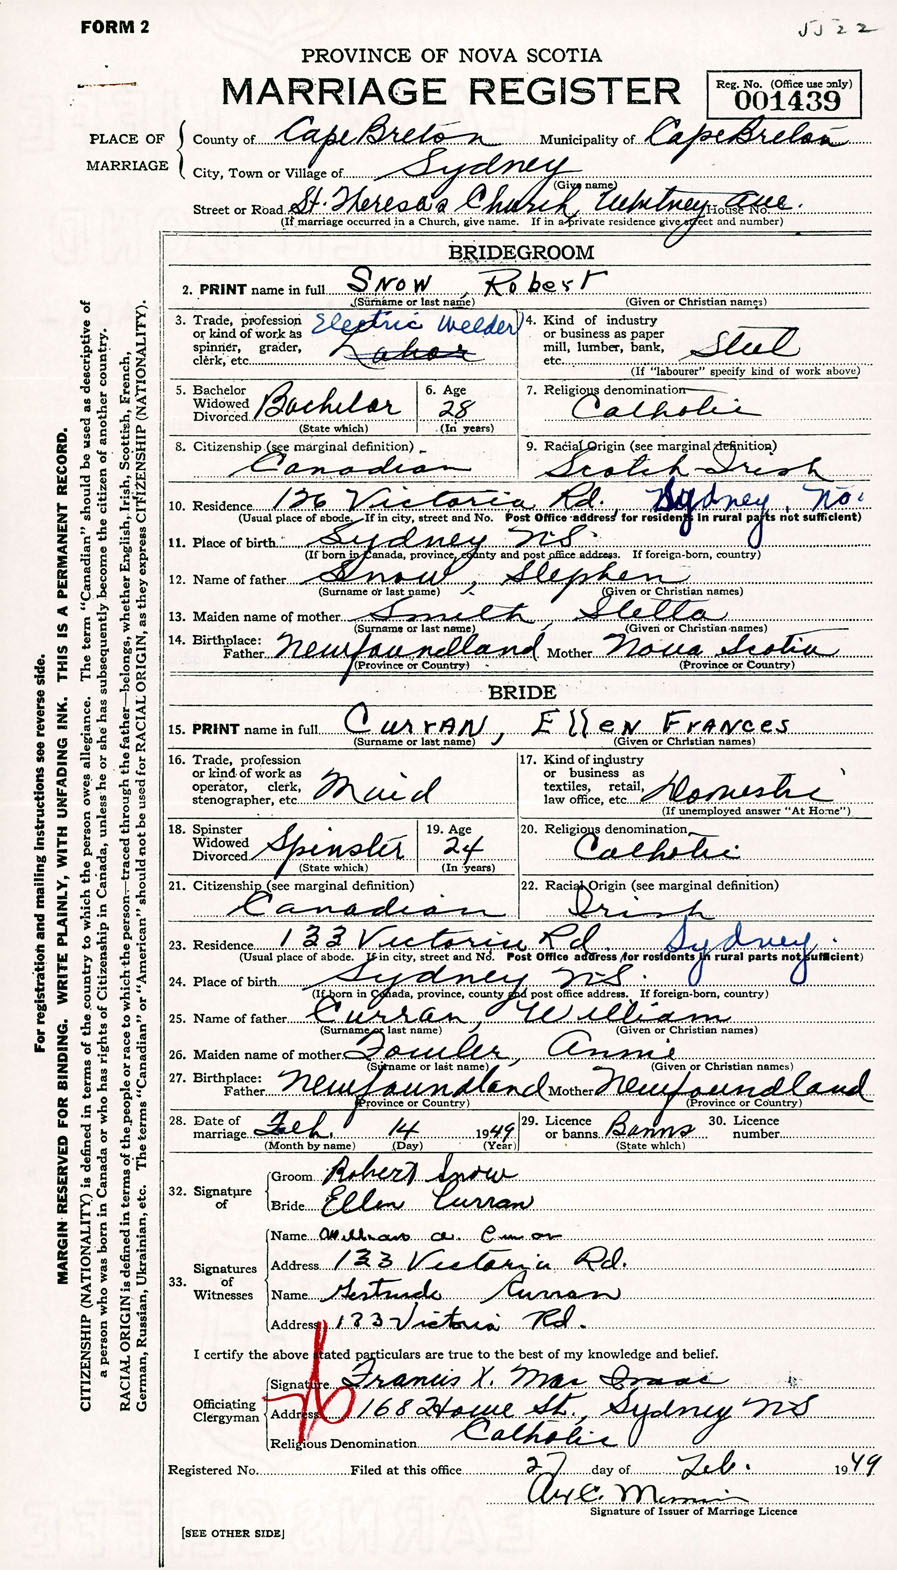 FORM 2
5522
PROVINCE OF NOVA SCOTIA
MARRIAGE REGISTER
Reg. No. (Office use only)
001439
PLACE OF MARRIAGE
County of Cape Breton Municipality of Cape Breton
City, Town or Village of Sydney
(Give name)
Street or Road St. Theresa's Church, Whitney Ave. House No.
(If marriage occurred in a Church, give name. If in a private residence give street and number)
BRIDEGROOM
2. PRINT name in full Snow, Robert
(Surname or last name) (Given or Christian names)
3. Trade, profession or kind of work as spinner, grader, clerk, etc. Electric Welder Labor
4. Kind of industry or business as paper mill, lumber, bank, etc. Steel
(If "labourer" specify kind of work above)
5. Bachelor Widowed Divorced Bachelor
(State which)
6. Age 28
(In years)
7. Religious denomination Catholic
8. Citizenship (see marginal definition) Canadian
9. Racial Origin (see marginal definition) Scotch Irish
10. Residence 136 Victoria Rd. Sydney, No.
(Usual place of abode. If in city, street and No. Post Office address for residents in rural parts not sufficient)
11. Place of birth Sydney N.S.
(If born in Canada, province, county and post office address. If foreign-born, country)
12. Name of father Snow, Stephen
(Surname or last name) (Given or Christian names)
13. Maiden name of mother Smith, Stella
(Surname or last name) (Given or Christian names)
14. Birthplace: Father Newfoundland Mother Nova Scotia
(Province or Country) (Province or Country)
BRIDE
15. PRINT name in full Curran, Ellen Frances
(Surname or last name) (Given or Christian names)
16. Trade, profession or kind of work as operator, clerk, stenographer, etc. Maid
17. Kind of industry or business as textiles, retail, law office, etc. Domestic
(If unemployed answer "At Home")
18. Spinster Widowed Divorced Spinster
(State which)
19. Age 24
(In years)
20. Religious denomination Catholic
21. Citizenship (see marginal definition) Canadian
22. Racial Origin (see marginal definition) Irish
23. Residence 133 Victoria Rd. Sydney.
(Usual place of abode. If in city, street and No. Post Office address for residents in rural parts not sufficient)
24. Place of birth Sydney N.S.
(If born in Canada, province, county and post office address. If foreign-born, country)
25. Name of father Curran, William
(Surname or last name) (Given or Christian names)
26. Maiden name of mother Fowler, Annie
(Surname or last name) (Given or Christian names)
27. Birthplace: Father Newfoundland Mother Newfoundland
(Province or Country) (Province or Country)
28. Date of marriage Feb. 14 1949
(Month by name) (Day) (Year)
29. Licence or banns Banns
(State which)
30. Licence number
32. Signature of
Groom Robert Snow
Bride Ellen Curran
33. Signatures of Witnesses
Name William A. Curran
Address 133 Victoria Rd.
Name Gertrude Curran
Address 133 Victoria Rd.
I certify the above stated particulars are true to the best of my knowledge and belief.
Officiating Clergyman
Signature Francis X. Mac Isaac
Address 168 Howe St., Sydney N.S
Religious Denomination Catholic
Registered No. Filed at this office 27 day of Feb. 1949
Signature of Issuer of Marriage Licence
[SEE OTHER SIDE]
For registration and mailing instructions see reverse side.
MARGIN RESERVED FOR BINDING. WRITE PLAINLY, WITH UNFADING INK. THIS IS A PERMANENT RECORD.
CITIZENSHIP (NATIONALITY) is defined in terms of the country to which the person owes allegiance. The term "Canadian" should be used as descriptive of
a person who was born in Canada or who has rights of Citizenship in Canada, unless he or she has subsequently become the citizen of another country.
RACIAL ORIGIN is defined in terms of the people or race to which the person—traced through the father—belongs, whether English, Irish, Scottish, French,
German, Russian, Ukrainian, etc. The terms "Canadian" or "American" should not be used for RACIAL ORIGIN, as they express CITIZENSHIP (NATIONALITY).